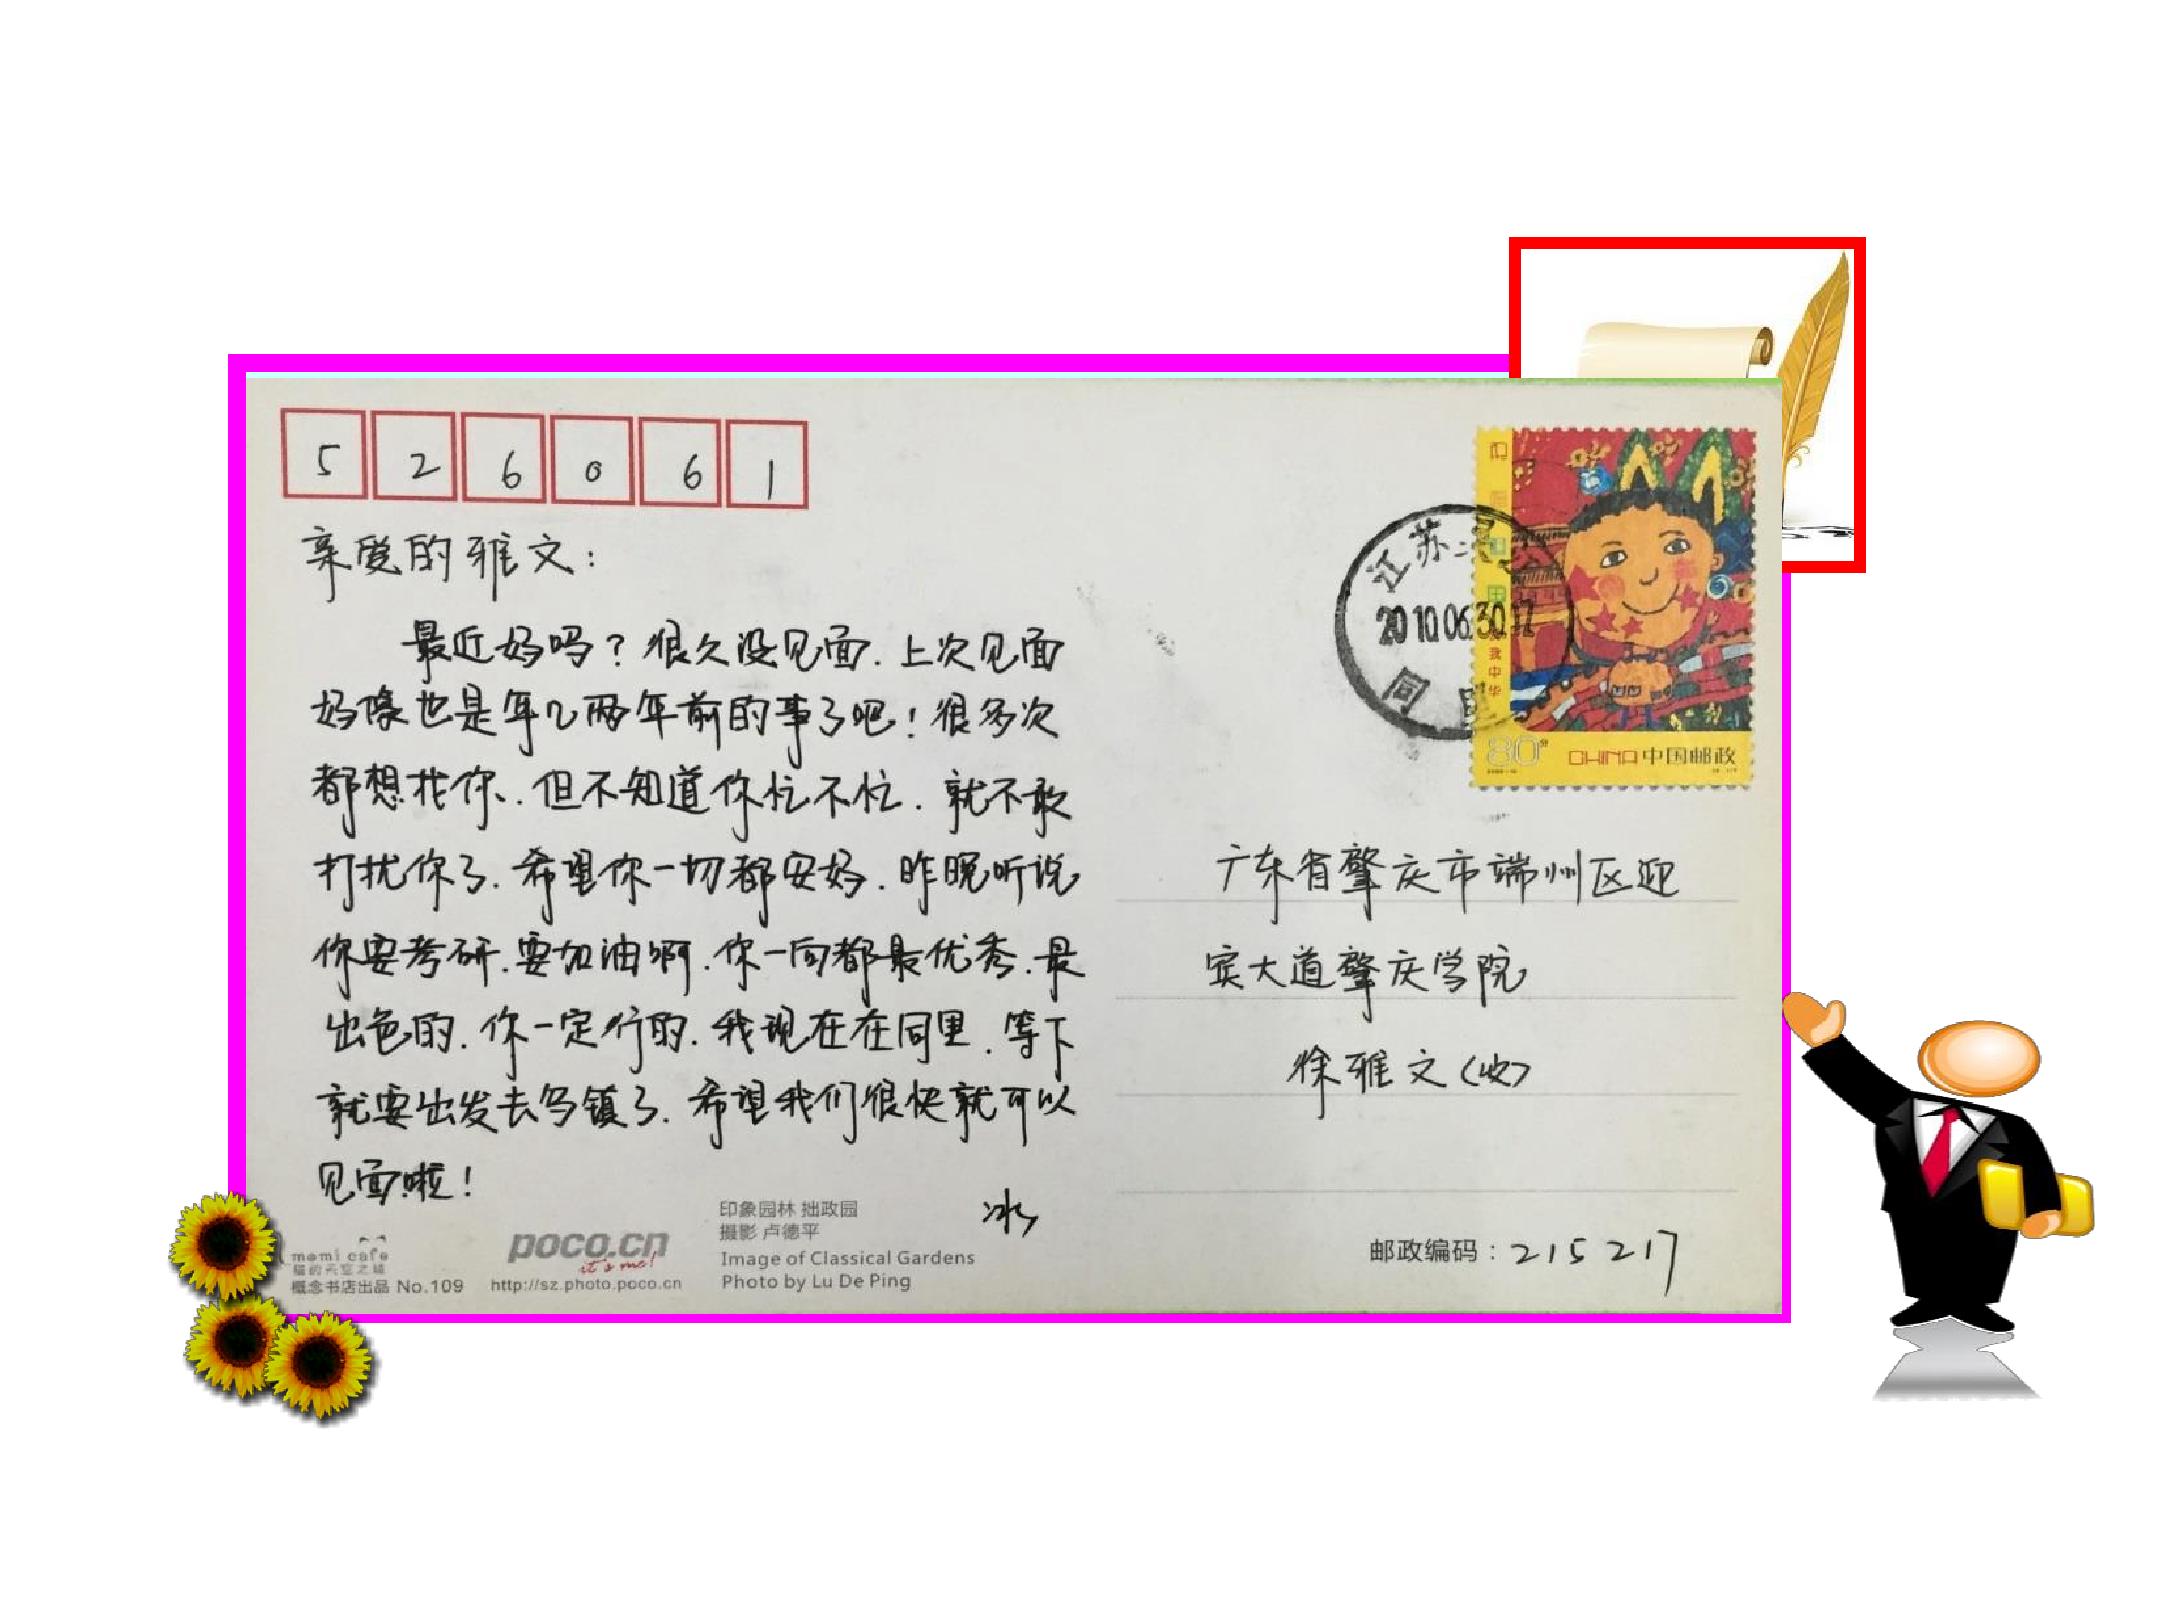 5 2 6 0 6 1
亲爱的雅文:
最近好吗?很久没见面.上次见面
好像也是年几两年前的事了吧!很多次
都想找你.但不知道你忙不忙.就不敢
打扰你了.希望你一切都安好.昨晚听说
你要考研.要加油啊.你一向都最优秀.最
出色的.你一定行的.我现在在同里.等下
就要出发去乌镇了.希望我们很快就可以
见面啦!
冰
momi cafe
猫的天空之城
概念书店出品 No.109
poco.cn
it's me!
http://sz.photo.poco.cn
印象园林 拙政园
摄影 卢德平
Image of Classical Gardens
Photo by Lu De Ping
江苏
2010.06.30.17
同
80分
CHINA中国邮政
广东省肇庆市端州区迎
宾大道肇庆学院
徐雅文(收)
邮政编码:215217